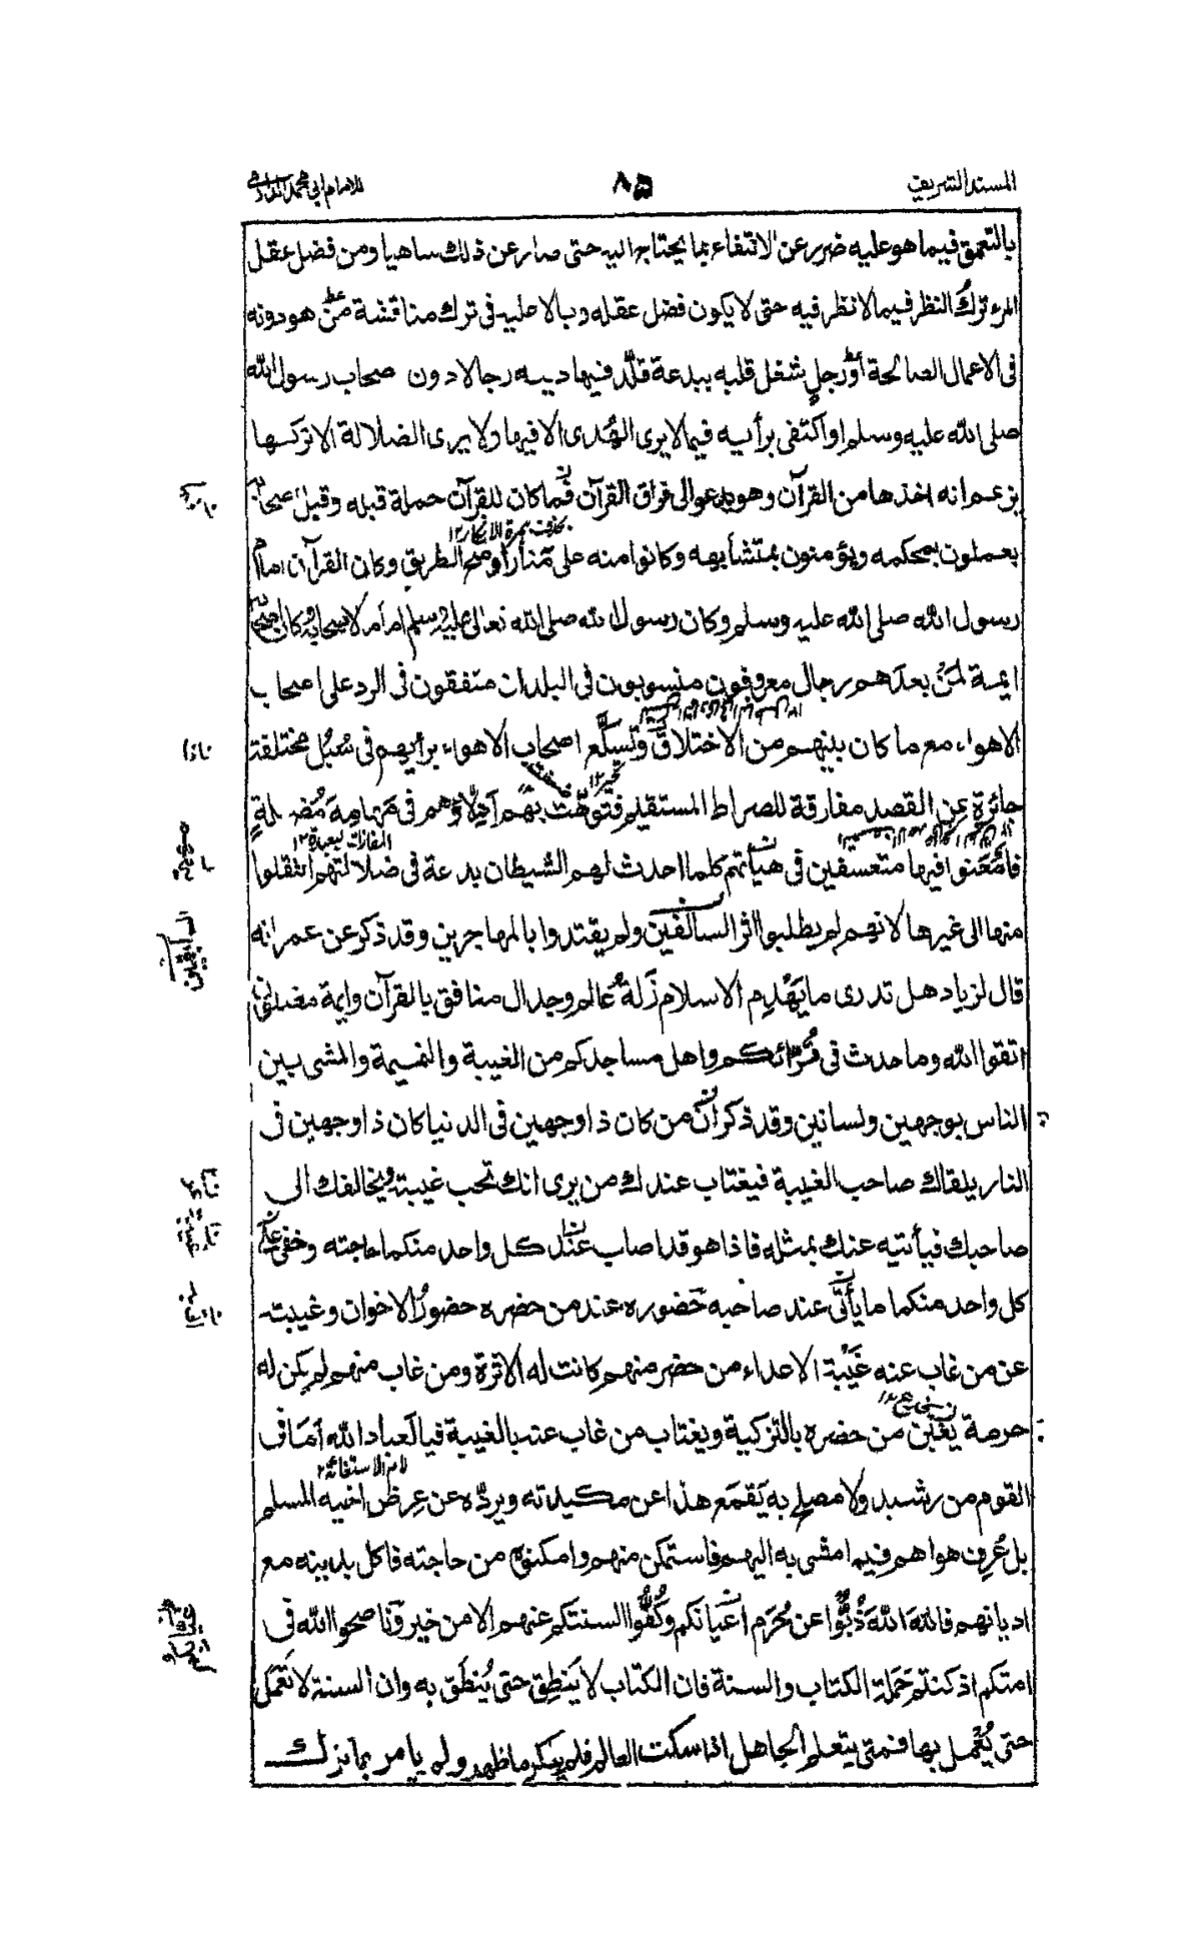 المسند الشريف ٨٥ للامام ابي محمد الدارمي
بالتعمق فيما هو عليه ضرر عن الانتفاء بما يحتاج اليه حتى صار عن ذلك ساهيا ومن فضل عقل
المرء ترك النظر فيما لا نظر فيه حتى لا يكون فضل عقله وبالا عليه في ترك مناقشة من هو دونه
في الاعمال الصالحة أو رجل شغل قلبه ببدعة قلّد فيها دينه رجالا دون صحاب رسول الله
صلى الله عليه وسلم او اكتفى برأيه فيما لا يرى الهُدى الا فيها ولا يرى الضلالة الا تركها
بزعم انه اخذها من القرآن وهو يدعو الى فراق القرآن فما كان للقرآن حملة قبله وقبل اصحابه
بحذف همزة الانكار١٢
يعملون بمحكمه ويؤمنون بمتشابهه وكانوا منه على مَنار اوضح الطريق وكان القرآن امام
رسول الله صلى الله عليه وسلم وكان رسول الله صلى الله تعالى عليه وسلم اماما لاصحابه وكان اصحابه
ايمة لمَنْ بعدَهم رجال معروفون منسوبون في البلدان متفقون في الرد على اصحاب
الاهواء مع ما كان بينهم من الاختلاف وتسكّع اصحاب الاهواء برأيهم في سُبُل مختلفة
تحير١٢
جائرة عن القصد مفارقة للصراط المستقيم فتوهّت بهم آدِلّاؤهم في مَهامِهَ مُضِلةٍ
المفازات لبعيدة١٢
فامعَنوا فيها متعسفين في هيأتهم كلما احدث لهم الشيطان بدعة في ضلالتهم انتقلوا
منها الى غيرها لانهم لم يطلبوا اثر السالفين ولم يقتدوا بالمهاجرين وقد ذكر عن عمر انه
قال لزياد هل تدرى ما يَهْدِم الاسلام زَلةُ عالم وجدال منافق بالقرآن وايمة مضلون
اتقوا الله وما حدث في قُرّائكم واهل مساجدكم من الغيبة والنميمة والمشى بين
الناس بوجهين ولسانين وقد ذكر أن من كان ذا وجهين في الدنيا كان ذا وجهين في
النار يلقاك صاحب الغيبة فيغتاب عندك من يرى انك تحب غيبته ويخالفك الى
صاحبك فيأتيه عنك بمثله فاذا هو قد اصاب عند كل واحد منكما حاجته وخفى على
كل واحد منكما ما يأتى عند صاحبه حَضوره عند من حضره حضورُ الاخوان وغيبته
عن من غاب عنه غَيْبة الاعداء من حضر منهم كانت له الاثرة ومن غاب منهم لم يكن له
حرمة يفتِن من حضره بالتزكية ويغتاب من غاب عنه بالغيبة فيالَعباد الله أمَا في
لام الاستغاثة١٢
القوم من رشيد ولا مصلح به يَقمَع هذا عن مكيدته ويردّه عن عِرض اخيه المسلم
بل عُرِف هواهم فيما مشى به اليهم فاستمكن منهم وامكنوه من حاجته فاكل بدينه مع
اديانهم فاللهَ اللهَ ذُبُّوا عن حُرَم اعيانكم وكُفُّوا السنتكم عنهم الا من خير وناصحوا الله في
امتكم اذ كنتم حَمَلة الكتاب والسنة فان الكتاب لا يَنطِق حتى يُنطَق به وان السنة لا تَعمَل
حتى يُعْمل بها فمتى يتعلم الجاهل اذا سكت العالم فلم ينكر ما ظهر ولم يامر بما ترك